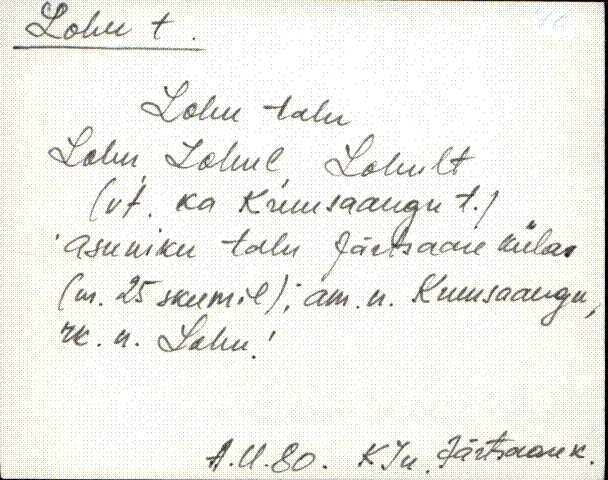 Lohu t.
Lohu talu
Lohu, Lohul, Lohult
(vt. ka Kruusaangu t.)
asuniku talu Järtsaare külas
(nr. 25 skeemil); am. n. Kruusaangu,
rk. n. Lohu!
A.U.80. KJn. Järtsaare k.